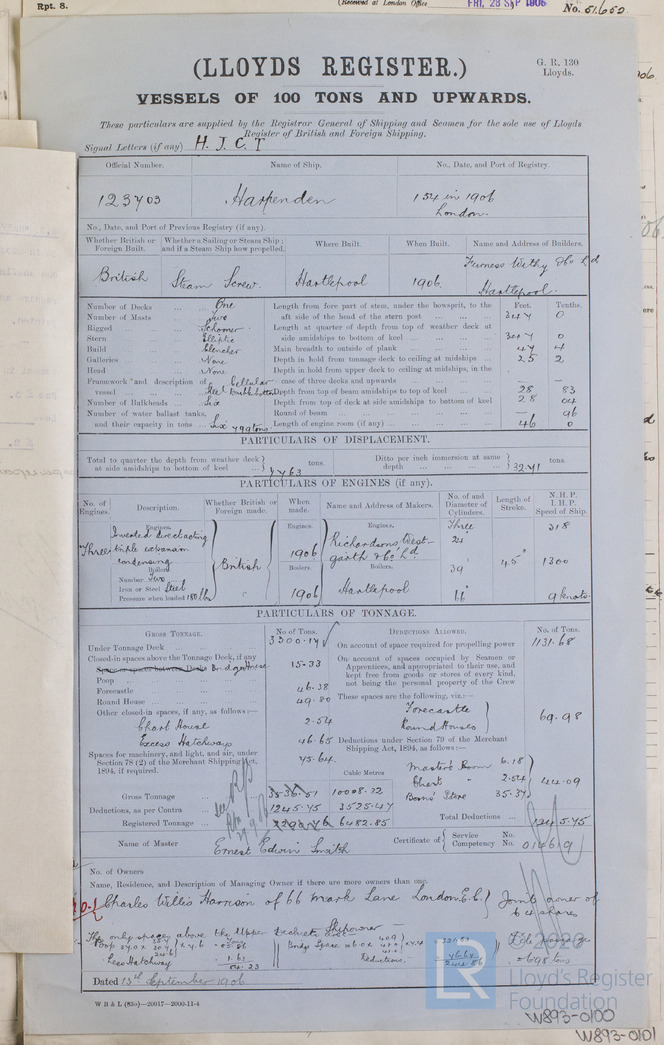 Rpt. 8.
(Received at London Office
FRI. 28 SEP 1906
No. 51,652
(LLOYDS REGISTER.)
G. R. 130
Lloyds.
VESSELS OF 100 TONS AND UPWARDS.
These particulars are supplied by the Registrar General of Shipping and Seamen for the sole use of Lloyds
Register of British and Foreign Shipping.
Signal Letters (if any) H. J. C. T
Official Number. Name of Ship. No., Date, and Port of Registry.
123703 Harpenden 154 in 1906
London.
No., Date, and Port of Previous Registry (if any).
Whether British or Foreign Built. Whether a Sailing or Steam Ship; and if a Steam Ship how propelled. Where Built. When Built. Name and Address of Builders.
British Steam Screw. Hartlepool 1906. Furness Withy & Co Ld
Hartlepool.
Number of Decks One Length from fore part of stem, under the bowsprit, to the Feet. Tenths.
Number of Masts Two aft side of the head of the stern post 347 0
Rigged Schooner Length at quarter of depth from top of weather deck at
Stern Elliptic side amidships to bottom of keel 347 0
Build Clencher Main breadth to outside of plank 47 4
Galleries None Depth in hold from tonnage deck to ceiling at midships 25 2
Head None Depth in hold from upper deck to ceiling at midships, in the
Framework and description of Cellular case of three decks and upwards
vessel Steel Double bottom Depth from top of beam amidships to top of keel 28 83
Number of Bulkheads Six Depth from top of deck at side amidships to bottom of keel 28 04
Number of water ballast tanks, Round of beam — 96
and their capacity in tons Six 779 tons Length of engine room (if any) 46 0
PARTICULARS OF DISPLACEMENT.
Total to quarter the depth from weather deck
at side amidships to bottom of keel 7763 tons. Ditto per inch immersion at same
depth 32.41 tons.
PARTICULARS OF ENGINES (if any).
No. of Engines. Description. Whether British or Foreign made. When made. Name and Address of Makers. No. of and Diameter of Cylinders. Length of Stroke. N.H.P. I.H.P. Speed of Ship.
Engines. Engines. Engines. Three 318
Three Inverted direct acting triple expansion condensing British 1906 Richardsons Westgarth & Co Ld 24
Boilers. Boilers. Boilers. 39 45" 1300
Number Two
Iron or Steel Steel 1906 Hartlepool 66 9 knots
Pressure when loaded 180 lbs
PARTICULARS OF TONNAGE.
GROSS TONNAGE. No of Tons. DEDUCTIONS ALLOWED. No. of Tons.
Under Tonnage Deck 3300.14 On account of space required for propelling power 1131.68
Closed-in spaces above the Tonnage Deck, if any
Space or spaces between Decks Bridge House 15.33 On account of spaces occupied by Seamen or
Poop Apprentices, and appropriated to their use, and
Forecastle 46.38 kept free from goods or stores of every kind,
not being the personal property of the Crew
Round House 49.80 These spaces are the following, viz.:—
Other closed-in spaces, if any, as follows:— Forecastle
Chart House 2.54 Round Houses 69.98
Excess Hatchways 46.65 Deductions under Section 79 of the Merchant
Shipping Act, 1894, as follows:—
Spaces for machinery, and light, and air, under
Section 78 (2) of the Merchant Shipping Act,
1894, if required. 75.64 Master's Room 6.18
Cubic Metres Chart " 2.54 44.09
Gross Tonnage 3536.51 10008.32 Bosns' Store 35.37
Deductions, as per Contra 1245.75 3525.47
Registered Tonnage 2290.76 6482.85 Total Deductions 1245.75
Name of Master Ernest Edwin Smith Certificate of Service No.
Competency No. 014619
No. of Owners
Name, Residence, and Description of Managing Owner if there are more owners than one.
Charles Willis Harrison of 66 Mark Lane London E.C. Joint owner of
64 shares
Shipowner
The only spaces above the Upper Deck
Poop
Excess Hatchway
Bridge Space
Deductions.
Dated 13th September 1906
W B & L (83o)—20017—2000-11-4
2020
LR
Lloyd's Register
Foundation
W893-0100
W893-0101